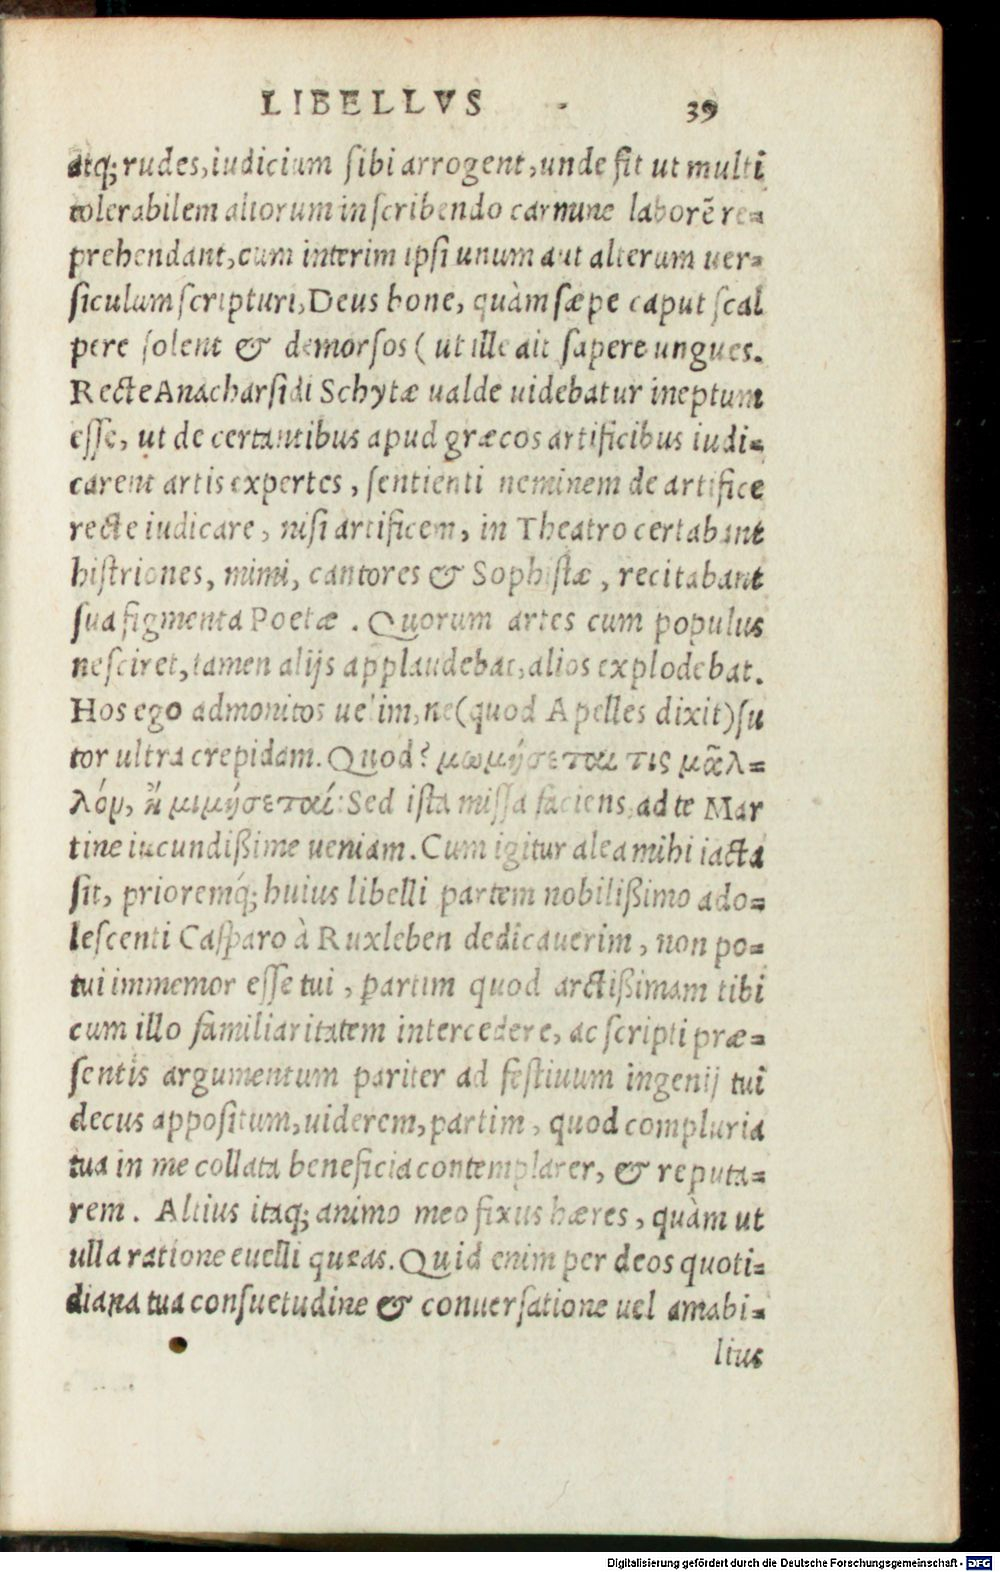 LIBELLVS 39
atq; rudes, iudicium sibi arrogent, unde fit ut multi
tolerabilem aliorum in scribendo carmine laborẽ re-
prehendant, cum interim ipsi unum aut alterum uer-
siculum scripturi, Deus bone, quàm sæpe caput scal
pere solent & demorsos ( ut ille ait sapere ungues.
Recte Anacharsidi Schytæ ualde uidebatur ineptum
esse, ut de certantibus apud græcos artificibus iudi-
carent artis expertes, sentienti neminem de artifice
recte iudicare, nisi artificem, in Theatro certabant
histriones, mimi, cantores & Sophistæ, recitabant
sua figmenta Poetæ. Quorum artes cum populus
nesciret, tamen alijs applaudebat, alios explodebat.
Hos ego admonitos uelim, ne (quod Apelles dixit) su
tor ultra crepidam. Quod? μωμήσεται τις μᾶλ-
λόν, ἢ μιμήσεταί: Sed ista missa faciens, ad te Mar
tine iucundißime ueniam. Cum igitur alea mihi iacta
sit, prioremq́; huius libelli partem nobilißimo ado-
lescenti Casparo à Ruxleben dedicauerim, non po-
tui immemor esse tui, partim quod arctißimam tibi
cum illo familiaritatem intercedere, ac scripti præ-
sentis argumentum pariter ad festiuum ingenij tui
decus appositum, uiderem, partim, quod compluria
tua in me collata beneficia contemplarer, & reputa-
rem. Altius itaq; animo meo fixus hæres, quàm ut
ulla ratione euelli queas. Quid enim per deos quoti-
diana tua consuetudine & conuersatione uel amabi-
lius
Digitalisierung gefördert durch die Deutsche Forschungsgemeinschaft - DFG